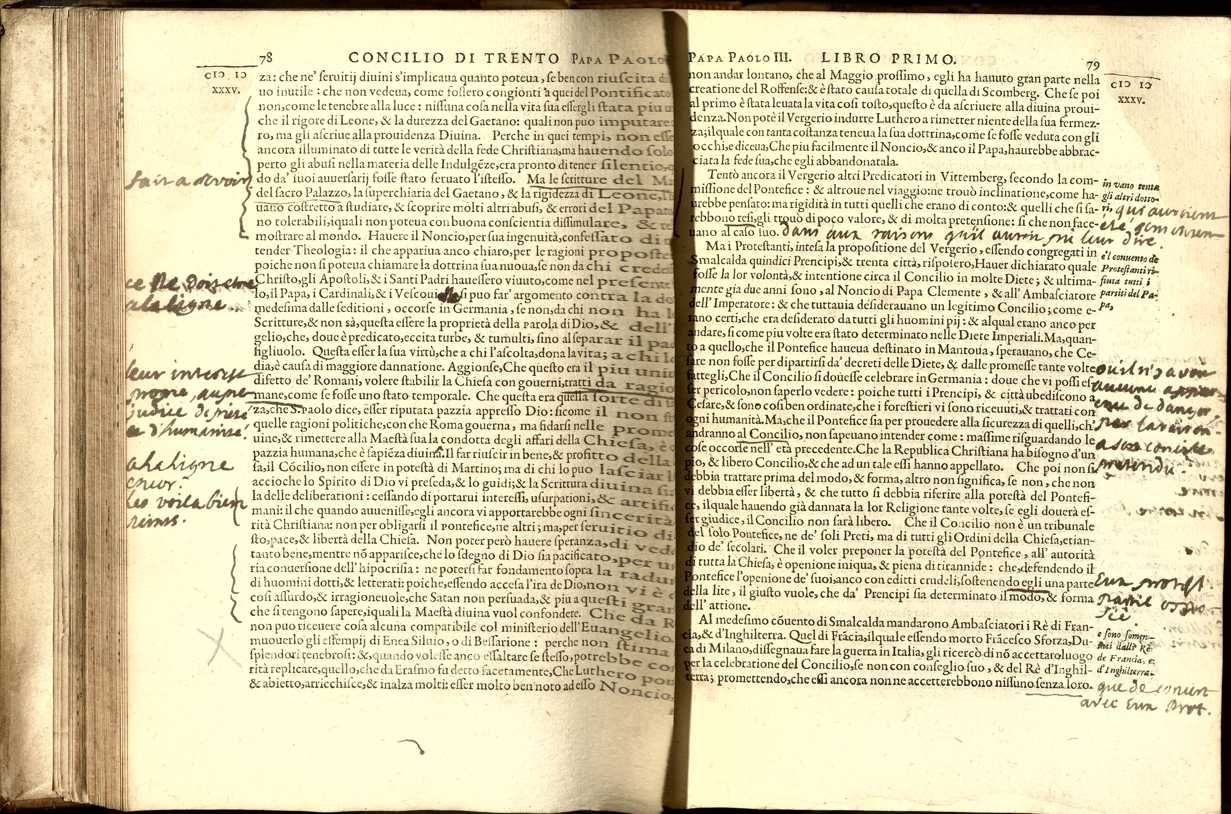 78 CONCILIO DI TRENTO PAPA PAOLO
CIƆ IƆ
XXXV.
za: che ne' seruitij diuini s'implicaua quanto poteua, se ben con riuscita di
uo inutile: che non vedeua, come fossero congionti à quei del Pontificato
non, come le tenebre alla luce: nissuna cosa nella vita sua essergli stata piu u
che il rigore di Leone, & la durezza del Gaetano: quali non può imputare
ro, ma gli ascriue alla prouidenza Diuina. Perche in quei tempi, non esse
ancora illuminato di tutte le verità della fede Christiana, ma hauendo solo
perto gli abusi nella materia delle Indulgẽze, era pronto di tener silentio,
do da' suoi auuersarij fosse stato seruato l'istesso. Ma le scritture del Ma
del sacro Palazzo, la superchiaria del Gaetano, & la rigidezza di Leone,
uano costretto a studiare, & scoprire molti altri abusi, & errori del Papat
no tolerabili, iquali non poteua con buona conscientia dissimulare, & re
mostrare al mondo. Hauere il Noncio, per sua ingenuità, confessato di
tender Theologia: il che appariua anco chiaro, per le ragioni proposte
poiche non si poteua chiamare la dottrina sua nuoua, se non da chi crede
Christo, gli Apostoli, & i Santi Padri hauessero viuuto, come nel presente
lo, il Papa, i Cardinali, & i Vescoui si puo far' argomento contra la do
medesima dalle seditioni, occorse in Germania, se non, da chi non ha l
Scritture, & non sà, questa essere la proprietà della parola di Dio, & dell'
gelio, che, doue è predicato, eccita turbe, & tumulti, sino al separar il pad
figliuolo. Questa esser la sua virtù, che a chi l'ascolta, dona la vita; a chi l
dia, è causa di maggiore dannatione. Aggionse, Che questo era il piu uniu
difetto de' Romani, volere stabilir la Chiesa con gouerni, tratti da ragio
mane, come se fosse uno stato temporale. Che questa era quella sorte di
za, che S. Paolo dice, esser riputata pazzia appresso Dio: sicome il non sti
quelle ragioni politiche, con che Roma gouerna, ma fidarsi nelle prome
uine, & rimettere alla Maestà sua la condotta degli affari della Chiesa, è
pazzia humana, che è sapiẽza diuina. Il far riuscir in bene, & profitto della
sa, il Cõcilio, non essere in potestà di Martino; ma di chi lo puo lasciar l
accioche lo Spirito di Dio vi preseda, & lo guidi; & la Scrittura diuina s
la delle deliberationi: cessando di portarui interessi, usurpationi, & artifi
mani: il che quando auuenisse, egli ancora vi apportarebbe ogni sincerità
rità Christiana: non per obligarsi il pontefice, ne altri; ma, per seruitio di
sto, pace, & libertà della Chiesa. Non poter però hauere speranza, di ved
tanto bene, mentre nõ apparisce, che lo sdegno di Dio sia pacificato, per u
ria conuersione dell'hipocrisia: ne potersi far fondamento sopra la radun
di huomini dotti, & letterati: poiche, essendo accesa l'ira de Dio, non vi è
cosi assurdo, & irragioneuole, che Satan non persuada, & piu a questi gran
che si tengono sapere, iquali la Maestà diuina vuol confondere. Che da R
non puo riceuere cosa alcuna compatibile col ministerio dell'Euangelio.
muouerlo gli essempij di Enea Siluio, o di Bessarione: perche non stima
splendori tenebrosi: &, quando volesse anco essaltare se stesso, potrebbe con
rità replicare, quello, che da Erasmo fu detto facetamente, Che Luthero pou
& abietto, arricchisce, & inalza molti: esser molto ben noto ad esso Noncio,
alaligne
PAPA PAOLO III. LIBRO PRIMO. 79
CIƆ IƆ
XXXV.
non andar lontano, che al Maggio prossimo, egli ha hauuto gran parte nella
creatione del Roffense: & è stato causa totale di quella di Scomberg. Che se poi
al primo è stata leuata la vita cosi tosto, questo è da ascriuere alla diuina proui-
denza. Non potè il Vergerio indurre Luthero a rimetter niente della sua fermez-
za; ilqual e con tanta costanza teneua la sua dottrina, come se fosse veduta con gli
occhi, e diceua, Che piu facilmente il Noncio, & anco il Papa, haurebbe abbrac-
ciata la fede sua, che egli abbandonatala.
Tentò ancora il Vergerio altri Predicatori in Vittemberg, secondo la com-
missione del Pontefice: & altroue nel viaggio: ne trouò inclinatione, come ha-
urebbe pensato: ma rigidità in tutti quelli che erano di conto: & quelli che si sa-
rebbono resi, gli trouò di poco valore, & di molta pretensione: si che non face-
uano al caso suo.
in vano tenta
gli altri dotto-
ri,
dans aux raisons qu'il auroit pu leur dire.
Ma i Protestanti, intesa la propositione del Vergerio, essendo congregati in
Smalcalda quindici Prencipi, & trenta città, risposero, Hauer dichiarato quale
fosse la lor volontà, & intentione circa il Concilio in molte Diete; & ultima-
mente gia due anni sono, al Noncio di Papa Clemente, & all' Ambasciatore
dell'Imperatore: & che tuttauia desiderauano un legitimo Concilio; come e-
rano certi, che era desiderato da tutti gli huomini pij: & alqual erano anco per
andare, si come piu volte era stato determinato nelle Diete Imperiali. Ma, quan-
to a quello, che il Pontefice haueua destinato in Mantoua, sperauano, che Ce-
sare non fosse per dipartirsi da' decreti delle Diete, & dalle promesse tante volte
fattegli, Che il Concilio si douesse celebrare in Germania: doue che vi possi es-
ser pericolo, non saperlo vedere: poiche tutti i Prencipi, & città ubediscono a
Cesare, & sono cosi ben ordinate, che i forestieri vi sono riceuuti, & trattati con
ogni humanità. Ma, che il Pontefice sia per prouedere alla sicurezza di quelli, ch'
andranno al Concilio, non sapeuano intender come: massime risguardando le
cose occorse nell' età precedente. Che la Republica Christiana ha bisogno d'un
pio, & libero Concilio, & che ad un tale essi hanno appellato. Che poi non si
debbia trattare prima del modo, & forma, altro non significa, se non, che non
vi debbia esser libertà, & che tutto si debbia riferire alla potestà del Pontefi-
ce, ilquale hauendo già dannata la lor Religione tante volte, se egli douerà es-
ser giudice, il Concilio non sarà libero. Che il Concilio non è un tribunale
del solo Pontefice, ne de' soli Preti, ma di tutti gli Ordini della Chiesa, etian-
dio de' secolari. Che il voler preponer la potestà del Pontefice, all' autorità
di tutta la Chiesa, è openione iniqua, & piena di tirannide: che, defendendo il
Pontefice l'openione de' suoi, anco con editti crudeli, sostenendo egli una parte
della lite, il giusto vuole, che da' Prencipi sia determinato il modo, & forma
dell' attione.
e'l conuento de
Protestanti ri-
fiuta tutti i
partiti del Pa-
pa,
Al medesimo cõuento di Smalcalda mandarono Ambasciatori i Rè di Fran-
cia, & d'Inghilterra. Quel di Frãcia, ilquale essendo morto Frãcesco Sforza, Du-
ca di Milano, dissegnaua fare la guerra in Italia, gli ricercò di nõ accettar oluogo
per la celebratione del Concilio, se non con conseglio suo, & del Rè d'Inghil-
terra; promettendo, che essi ancora non ne accetterebbono nissuno senza loro.
e sono somen-
tati dalli Rè
de Francia, e
d'Inghilterra.